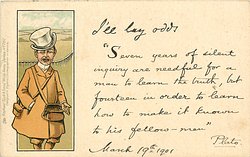 I'll lay odds
"Seven years of silent
inquiry are needful for a
man to learn the truth, but
fourteen in order to learn
how to make it known
to his fellow-men"
Plato.
March 19th 1901